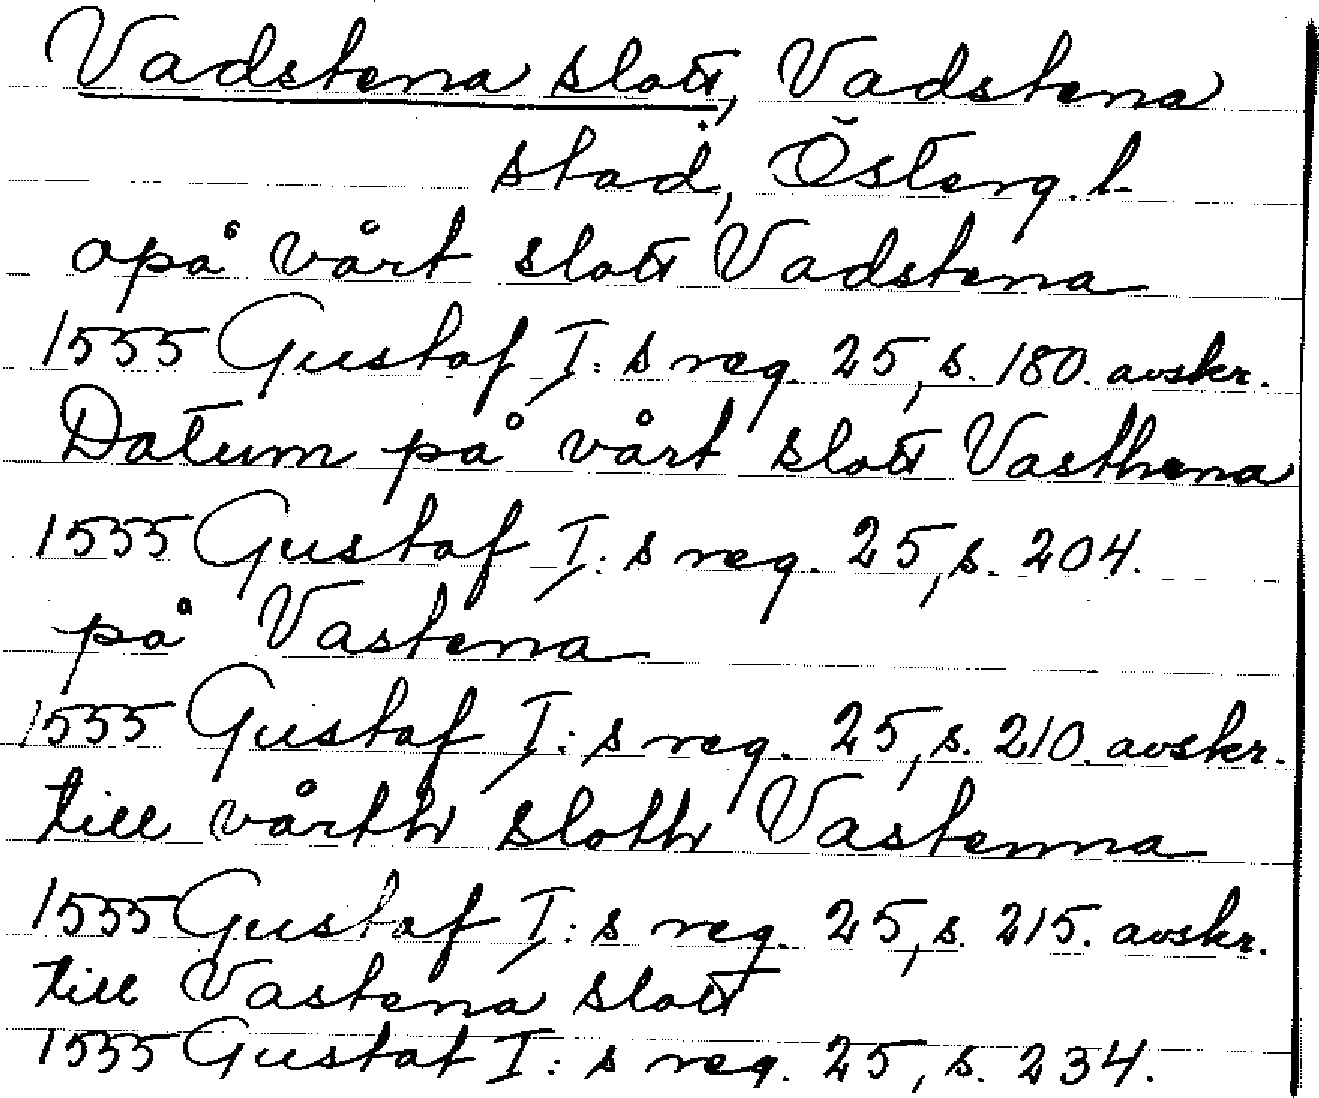 Vadstena slott, Vadstena
stad, Österg. l.
opå vårt slott Vadstena
1555 Gustaf I:s reg. 25, s. 180. avskr.
Datum på vårt slott Vasthena
1555 Gustaf I:s reg. 25, s. 204.
på Vastena
1555 Gustaf I:s reg. 25, s. 210. avskr.
till vårth sloth Vastenna
1555 Gustaf I:s reg. 25, s. 215. avskr.
till Vastena slott
1555 Gustaf I:s reg. 25, s. 234.